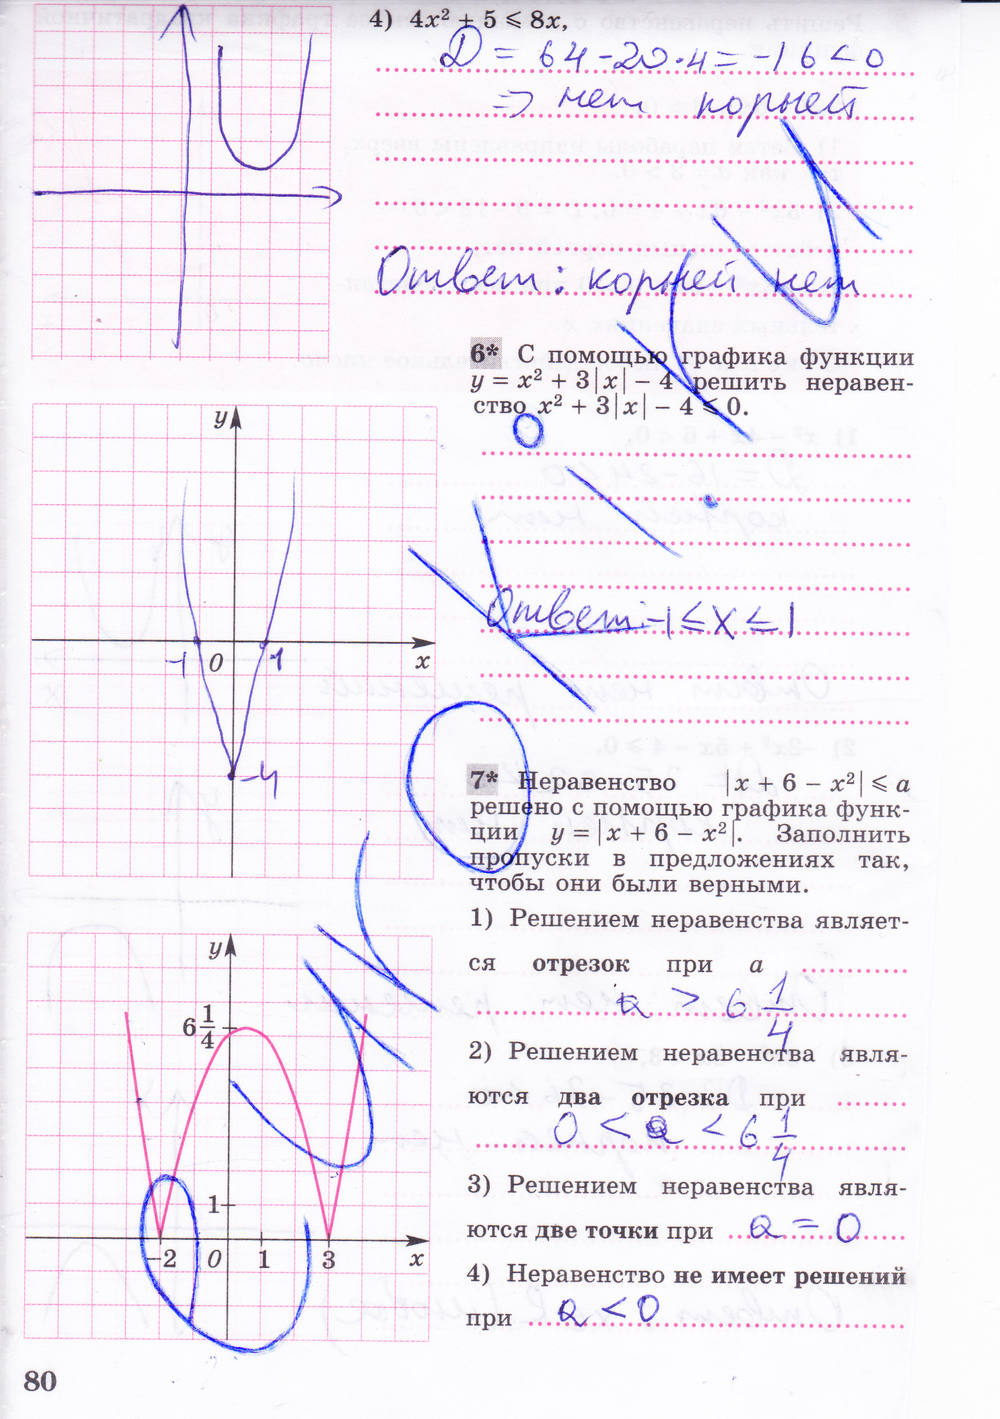 4) 4x² + 5 ⩽ 8x,
D = 64 - 20·4 = -16 < 0
⇒ нет корней
Ответ: корней нет
6* С помощью графика функции
y = x² + 3|x| − 4 решить неравен-
ство x² + 3|x| − 4 ⩽ 0.
y
-1
0
1
x
-4
Ответ -1 ≤ x ≤ 1
7* Неравенство |x + 6 − x²| ⩽ a
решено с помощью графика функ-
ции y = |x + 6 − x²|. Заполнить
пропуски в предложениях так,
чтобы они были верными.
1) Решением неравенства являет-
ся отрезок при a
a > 6 1/4
2) Решением неравенства явля-
ются два отрезка при
0 < a < 6 1/4
3) Решением неравенства явля-
ются две точки при a = 0
4) Неравенство не имеет решений
при a < 0
y
6 1/4
1
−2
0
1
3
x
80